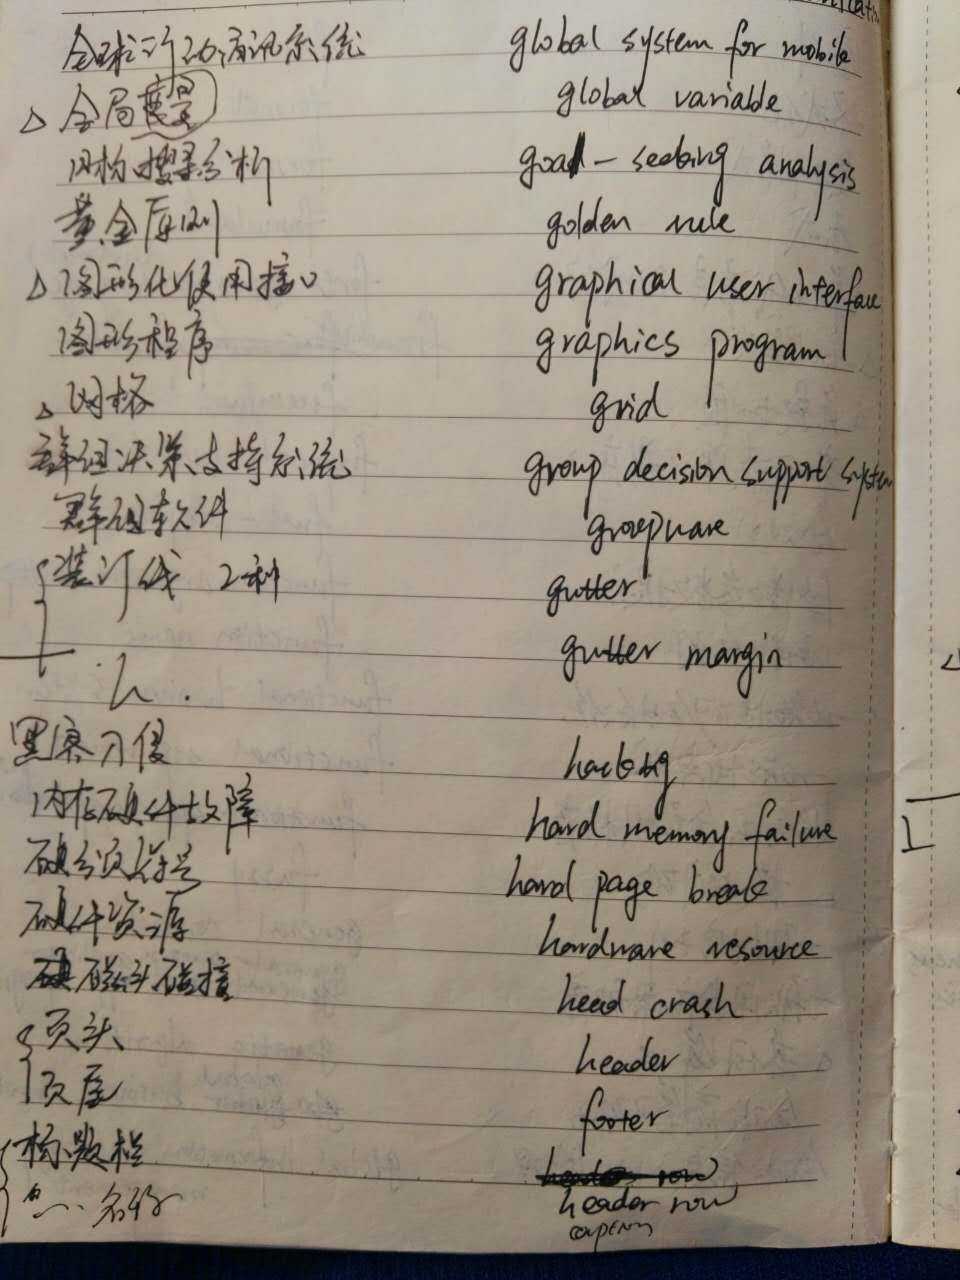 全球行动通讯系统 global system for mobile
△ 全局变量 global variable
目标搜寻分析 goal-seeking analysis
黄金原则 golden rule
△ 图形化使用接口 graphical user interface
图形程序 graphics program
△ 网格 grid
群组决策支持系统 group decision support system
群组软件 groupware
装订线 2种 gutter
gutter margin
h.
黑客入侵 hacking
内存硬件故障 hard memory failure
硬分页符号 hard page break
硬件资源 hardware resource
磁头碰撞 head crash
页头 header
页尾 footer
标题栏
header row
名称